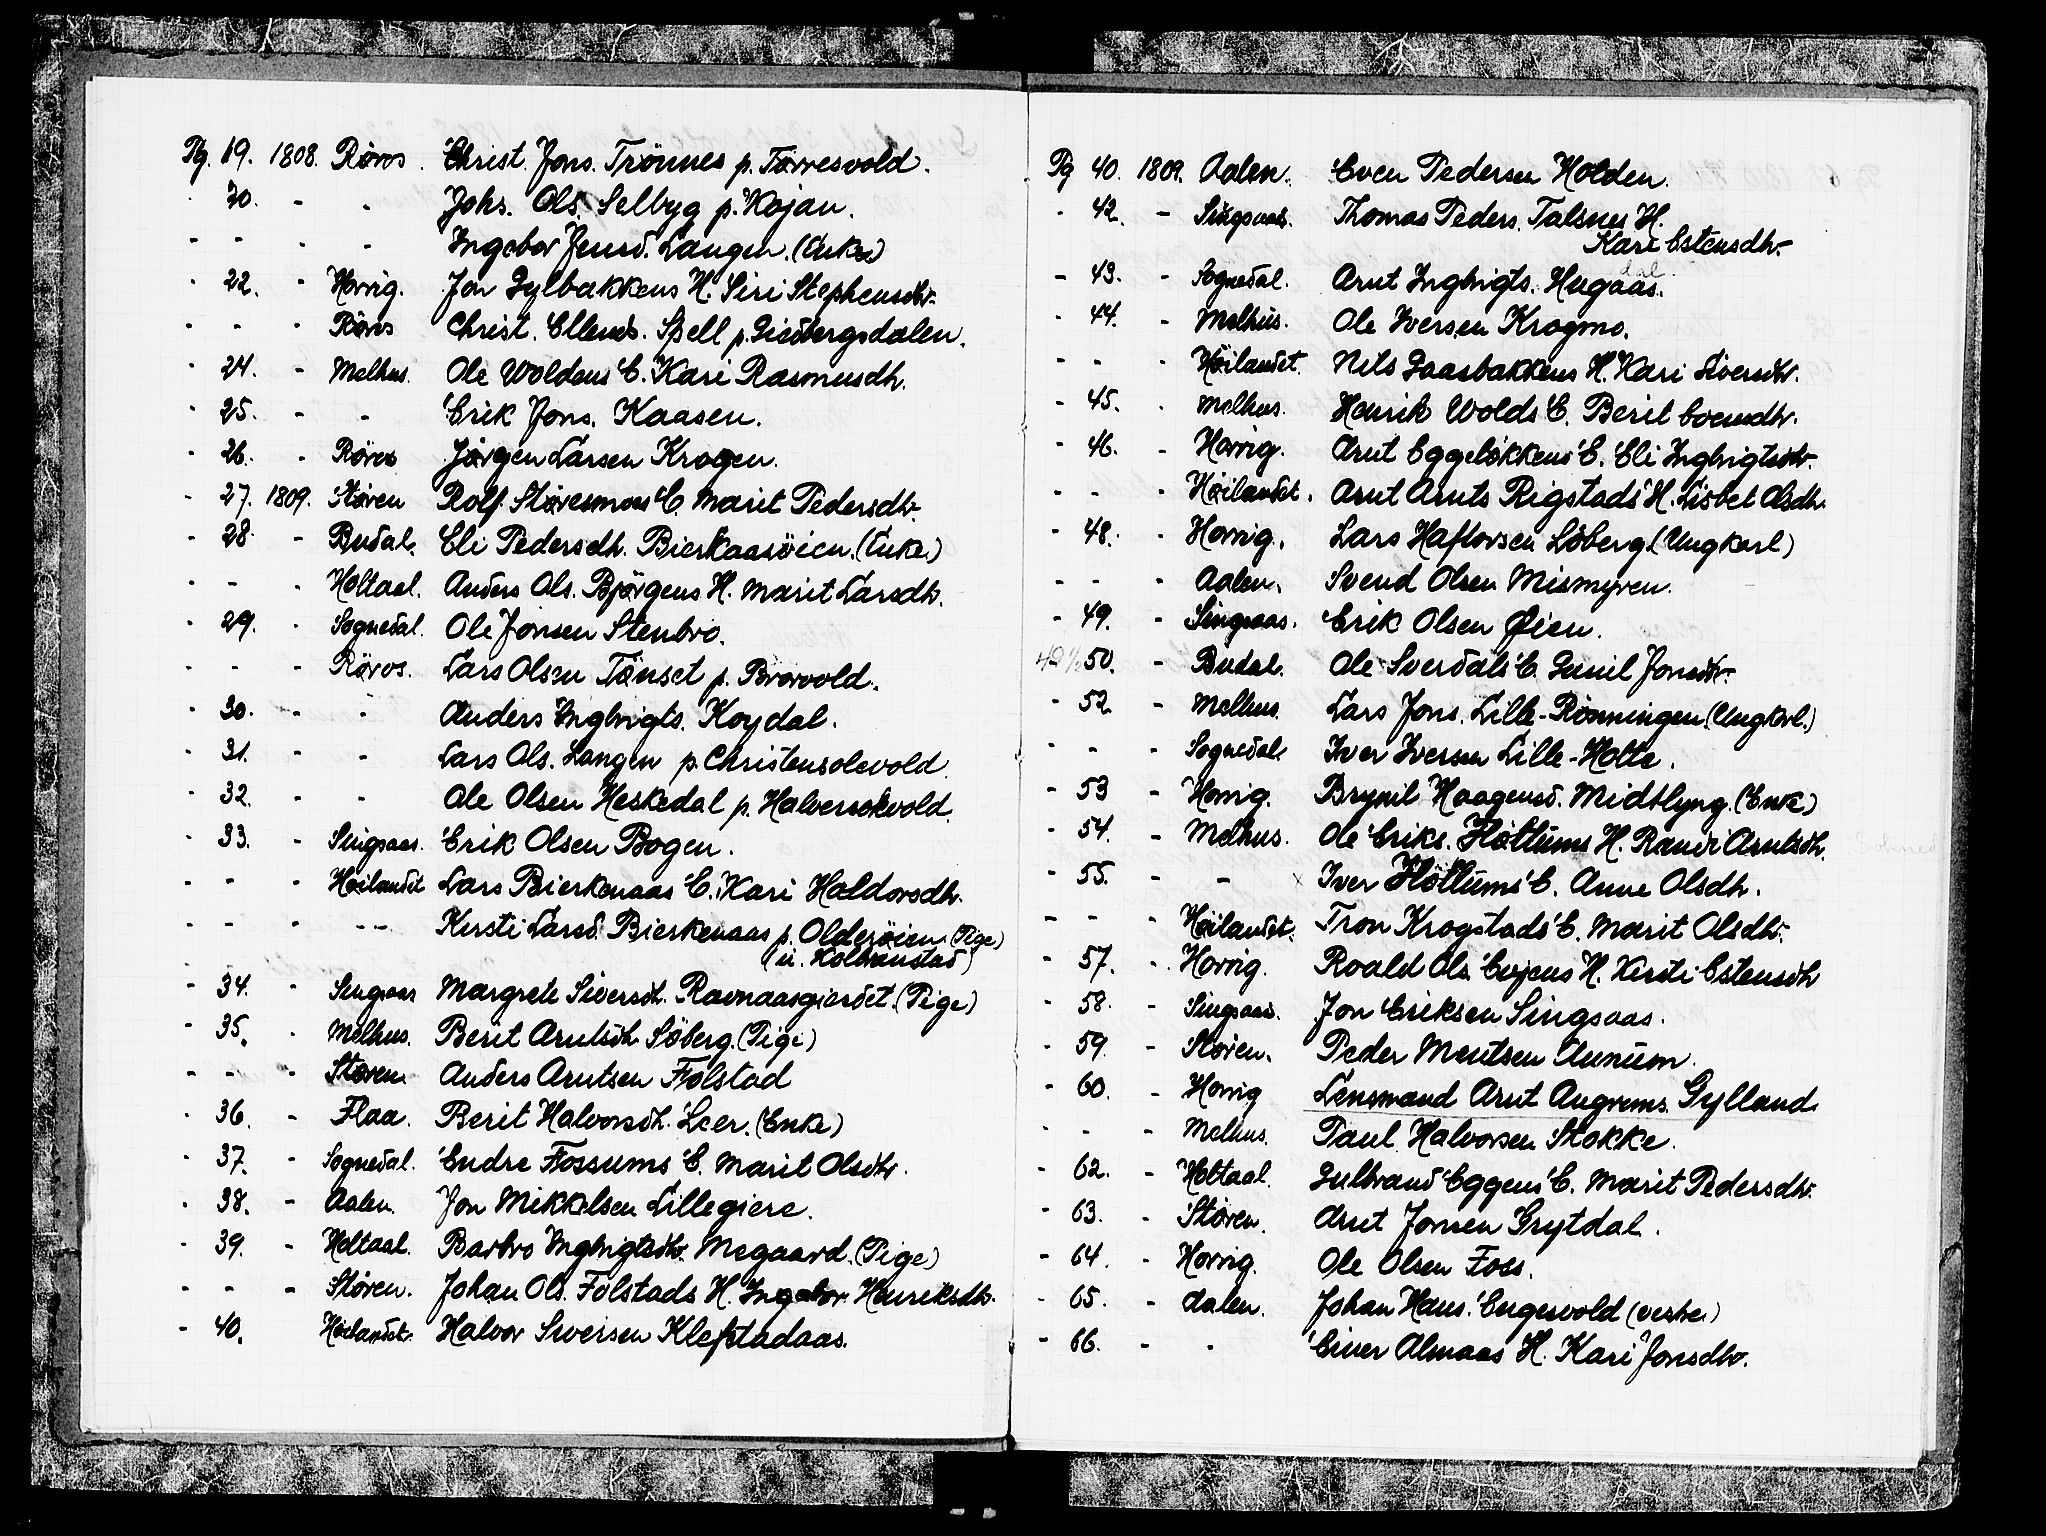 Pg. 19. 1808. Røros. Christ. Jons. Trönnes p. Tørresvold.
" 20. " " Johs. Ols. Selbyg p. Kojan.
" " " " Ingebor Jensd. Langen. (Enke)
" 22. " Horrig. Jon Gylbakkens H. Siri Stephensdtr.
" " " Røros Christ. Ellends. Spell p. Giedbergsdalen.
" 24. " Melhus. Ole Woldens E. Kari Rasmusdtr.
" 25. " " Erik Jons. Kaasen.
" 26. " Røros Jørgen Larsen Krogen.
" 27. 1809. Støren Rolf Størenmoes E. Marit Pedersdtr.
" 28. " Budal. Eli Pedersdtr. Bierkaasøien. (Enke)
" " " Holtaal. Anders Ols. Bjørgens H. Marit Larsdtr.
" 29. " Sognedal. Ole Jonsen Stenbro.
" " " Røros. Lars Olsen Tönset p. Brorvold.
" 30. " " Anders Ingbrigts. Koydal.
" 31. " " Lars Ols. Langen p. Christensolevold.
" 32. " " Ole Olsen Heskedal p. Halvorsokvold.
" 33. " Singsaas. Erik Olsen Bogen.
" " " Høilandet Lars Bierkenaas E. Kari Haldorsdtr.
" " " " " Kirsti Larsd. Bierkenaas p. Olderøien (Pige)
(u. Kolbranstad)
" 34. " Singsaas Margrete Siversdtr. Ravnaasgierdet. (Pige)
" 35. " Melhus. Berit Arntsdtr. Söberg. (Pige)
" " " Støren. Anders Arntsen Folstad
" 36. " Flaa. Berit Halvorsdtr. Leer. (Enke)
" 37. " Sognedal. Endre Fossums E. Marit Olsdtr.
" 38. " Aalen. Jon Mikkelsen Lillegiere.
" 39. " Holtaal. Barbro Ingbrigtsdtr. Megaard. (Pige)
" " " Støren. Johan Ols. Folstads H. Ingebor Henriksdtr.
" 40. Høilandet. Halvor Siversen Klefstadaas.
Pg 40. 1809. Aalen. Even Pedersen Holden.
" 42. " Singsaas. Thomas Peders. Talsnes H.
Kari Estensdtr.
" 43. " Sognedal. Arnt Ingbrigts. Hugaas.
dal
" 44. " Melhus. Ole Iversen Krogmo.
" " " Høilandet. Nils Gaasbakkens H. Kari Siversdtr.
" 45. " Melhus. Henrik Wolds E. Berit Evensdtr.
" 46. " Horrig. Arnt Eggeløkkens E. Eli Ingbrigtsdtr.
" " " Høilandet. Arnt Arnts Rigstads H. Lisbet Olsdtr.
" 48. " Horrig. Lars Haftorsen Löberg. (Ungkarl)
" " " Aalen. Svend Olsen Mismyren.
" 49. " Singsaas. Erik Olsen Øien.
50. " Budal. Ole Sverdals E. Gunil Jonsdtr.
" 52. " Melhus. Lars Jons. Lille-Rönningen. (Ungkarl.)
" " " Sognedal. Iver Iversen Lille-Holte.
" 53 " Horrig. Brynil Haagensd. Midtlyng. (Enke)
" 54. " Melhus. Ole Eriks. Hollums H. Randi Arntsdtr.
" 55. " " x Iver Hollums E. Anne Olsdtr.
" " " Høilandet. Tron Krogstads E. Marit Olsdtr.
" 57. " Horrig. Roald Ols. Evjens H. Kirsti Estensdtr
" 58. " Singsaas. Jon Eriksen Singsaas.
" 59. " Støren. Peder Mentsen Aunum.
" 60. " Horrig Lensmand Arnt Angrems. Gylland.
" " " Melhus. Paul Halvorsen Stokke.
" 62. " Holtaal. Gulbrand Eggens E. Marit Pedersdtr.
" 63. " Støren. Arnt Jonsen Grytdal.
" 64. " Horrig. Ole Olsen Foss.
" 65. " Aalen. Johan Hans. Engesvold (vestre)
" 66. " " Einer Almaas H. Kari Jonsdtr.